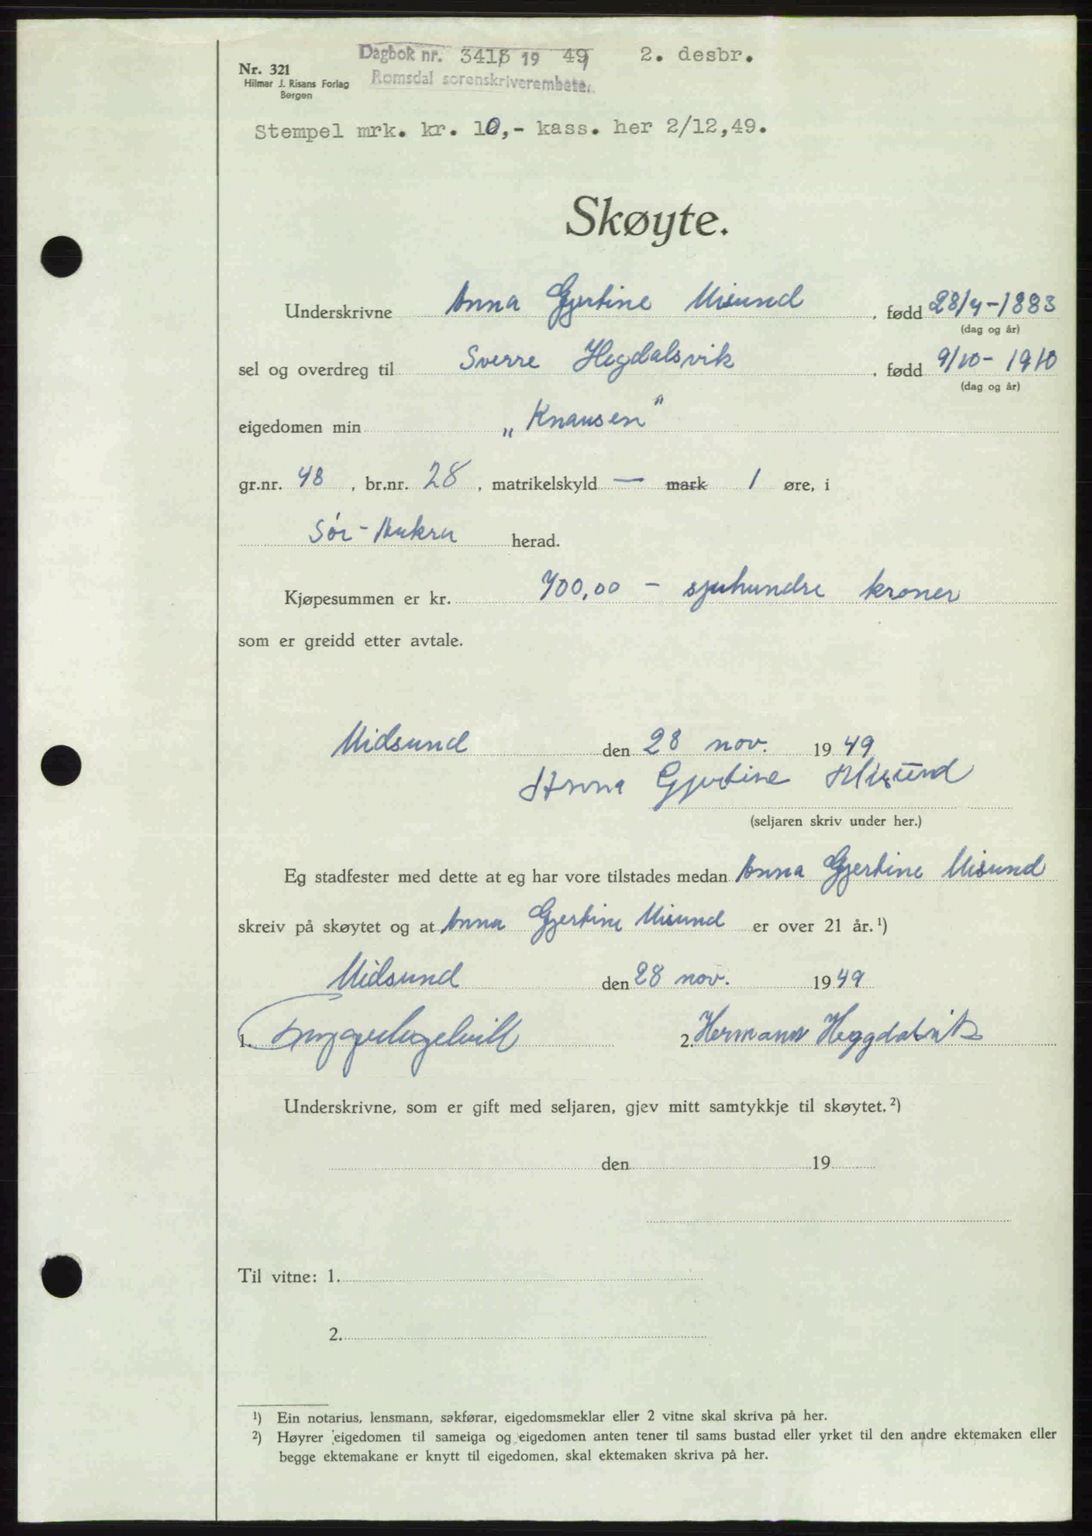 Dagbok nr. 3413 19 49 2. desbr.
Romsdal sorenskriverembete.
Nr. 321
Hilmar J. Risans Forlag
Bergen
Stempel mrk. kr. 10,- kass. her 2/12,49.
Skøyte.
Underskrivne Anna Gjertine Misund , fødd 28/4-1883
(dag og år)
sel og overdreg til Sverre Hegdalsvik , fødd 9/10-1910
(dag og år)
eigedomen min „Knausen"
gr.nr. 48 , br.nr. 28 , matrikelskyld — mark 1 øre, i
Sør-Aukra herad.
Kjøpesummen er kr. 700,00 — sjuhundre kroner
som er greidd etter avtale.
Midsund den 28 nov. 19 49
Anna Gjertine Misund
(seljaren skriv under her.)
Eg stadfester med dette at eg har vore tilstades medan Anna Gjertine Misund
skreiv på skøytet og at Anna Gjertine Misund er over 21 år.¹)
Midsund den 28 nov. 1949
1. 2. Hermann Heggdalsvik
Underskrivne, som er gift med seljaren, gjev mitt samtykkje til skøytet.²)
den 19
Til vitne: 1.
2.
¹) Ein notarius, lensmann, sakførar, eigedomsmeklar eller 2 vitne skal skriva på her.
²) Høyrer eigedomen til sameiga og eigedomen anten tener til sams bustad eller yrket til den andre ektemaken eller
begge ektemakane er knytt til eigedomen, skal ektemaken skriva på her.